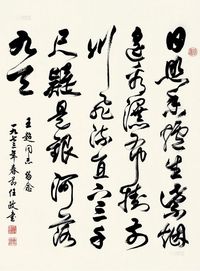 日照香爐生紫烟
遙看瀑布掛前
川飛流直下三千
尺疑是銀河落
九天
王同志留念
一九七三年春任政書